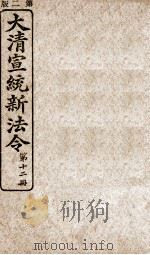 第二版
大清宣統新法令
第十二冊
mtoou.info